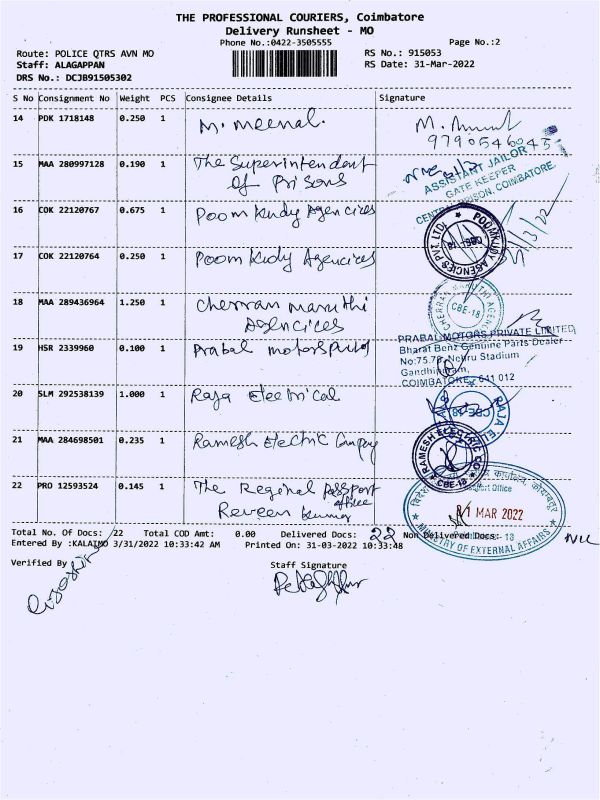 THE PROFESSIONAL COURIERS, Coimbatore
Delivery Runsheet - MO
Phone No.:0422-3505555
Page No.:2
Route: POLICE QTRS AVN MO
RS No.: 915053
Staff: ALAGAPPAN
RS Date: 31-Mar-2022
DRS No.: DCJB91505302
S No Consignment No Weight PCS Consignee Details Signature
14 PDK 1718148 0.250 1 M. meenal.
9790546045
15 MAA 280997128 0.190 1 The Superintendent
of Prisons
ASSISTANT JAILOR
GATE KEEPER
CENTRAL PRISON, COIMBATORE.
16 COK 22120767 0.675 1 Poom Kudy Agencices
17 COK 22120764 0.250 1 Poom Kudy Agencices
POOMKUDY AGENCIES PVT. LTD.
CBE-18
18 MAA 289436964 1.250 1 Cherran maruthi
Agencices
CBE-18
19 HSR 2339960 0.100 1 Prabal motors
PRABAL MOTORS PRIVATE LIMITED
Bharat Benz Genuine Parts Dealer
Nehru Stadium
Gandhipuram,
COIMBATORE - 641 012
20 SLM 292538139 1.000 1 Raja Electrical
21 MAA 284698501 0.235 1 Ramesh Electric Company
RAMESH ELECTRIC CO.
CBE-18
22 PRO 12593524 0.145 1 The Regional Passport
office
Raveen Kumar
31 MAR 2022
MINISTRY OF EXTERNAL AFFAIRS
Total No. Of Docs: 22 Total COD Amt: 0.00 Delivered Docs: 22 Non Delivered Docs:- Nil
Entered By :KALAIMO 3/31/2022 10:33:42 AM Printed On: 31-03-2022 10:33:48
Verified By
Staff Signature